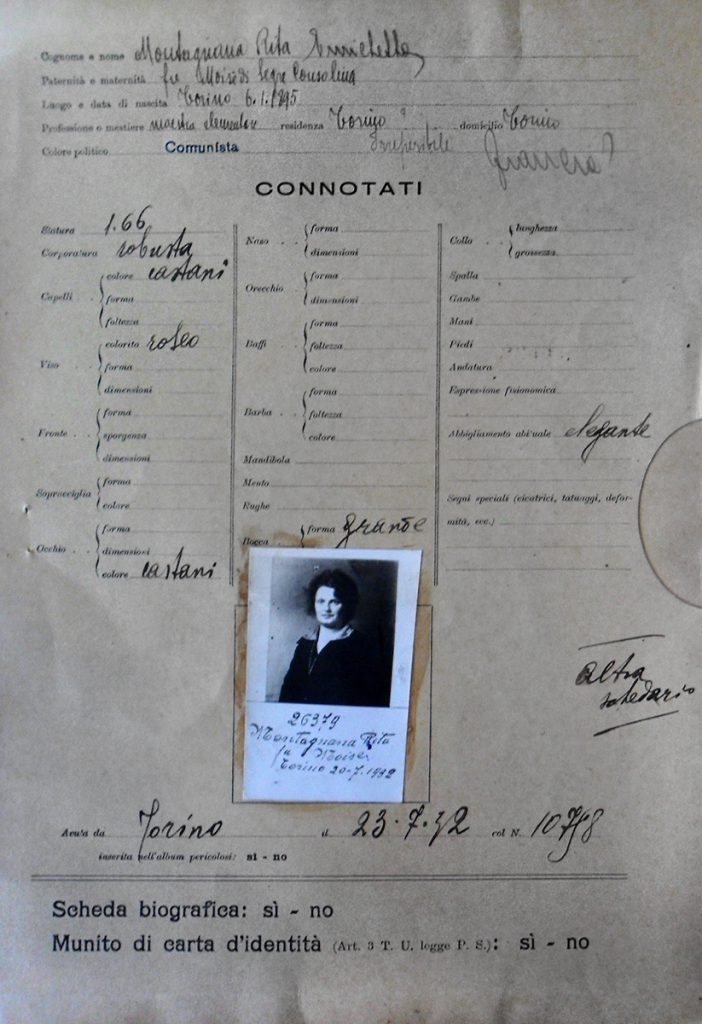 Cognome e nome Montagnana Rita Enrichetta
Paternità e maternità fu Moisè di Segre Consolina
Luogo e data di nascita Torino 6.1.1895
Professione o mestiere maestra elementare residenza Torino ? domicilio Torino
Colore politico Comunista Irreperibile
CONNOTATI
Statura 1.66
Corporatura robusta
Capelli
colore castani
forma
foltezza
Viso
colorito roseo
forma
dimensioni
Fronte
forma
sporgenza
dimensioni
Sopracciglia
forma
colore
Occhio
forma
dimensioni
colore castani
Naso
forma
dimensioni
Orecchio
forma
dimensioni
Baffi
forma
foltezza
colore
Barba
forma
foltezza
colore
Mandibola
Mento
Rughe
Bocca
forma grande
Collo
lunghezza
grossezza
Spalla
Gambe
Mani
Piedi
Andatura
Espressione fisionomica
Abbigliamento abituale elegante
Segni speciali (cicatrici, tatuaggi, defor-
mità, ecc.)
Altro
schedario
26379
Montagnana Rita
fu Moise
Torino 20-7-1932
Avuta da Torino il 23-7-32 col N. 10758
inserita nell'album pericolosi: sì - no
Scheda biografica: sì - no
Munito di carta d'identità (Art. 3 T. U. legge P. S.): sì - no